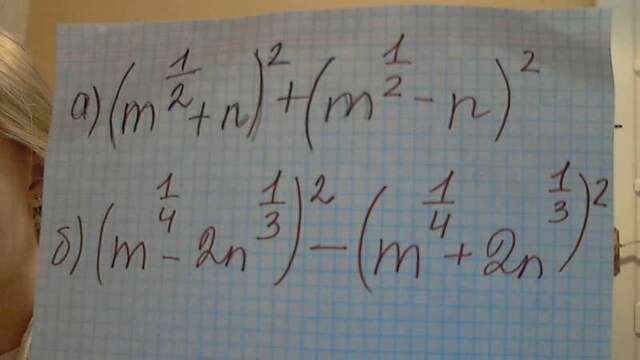 а) (m^{1/2} + n)^2 + (m^{1/2} - n)^2
б) (m^{1/4} - 2n^{1/3})^2 - (m^{1/4} + 2n^{1/3})^2